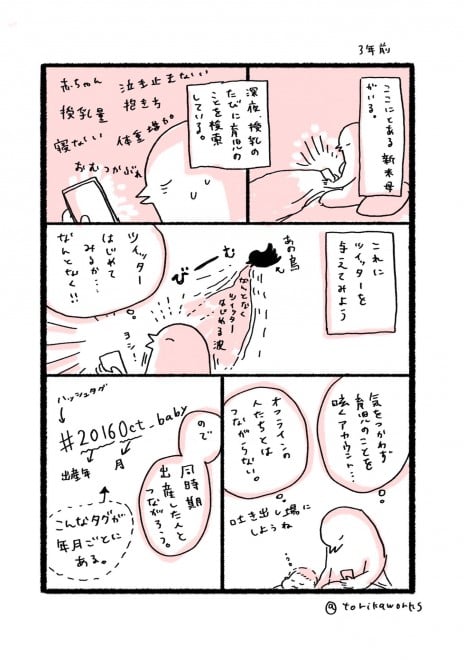 3年前
ここにとある新米母
がいる。
深夜、授乳の
たびに育児の
ことを検索
している。
赤ちゃん
泣き止まない
授乳量
抱き方
寝ない
体重増加
おむつかぶれ
これに
ツイッターを
与えてみよう
あの鳥
むーびー
なんとなく
ツイッター
はじめる波
ツイッター
はじめて
みるか…
なんとなく!!
ヨシ…
気をつかわず
育児のことを
呟くアカウント…
オフラインの
人たちとは
つながらない。
吐き出し場に
しようね
ので
同時期
出産した人と
つながろう。
ハッシュタグ
#2016Oct_baby
出産年
月
こんなタグが
年月ごとに
ある。
@torikaworks